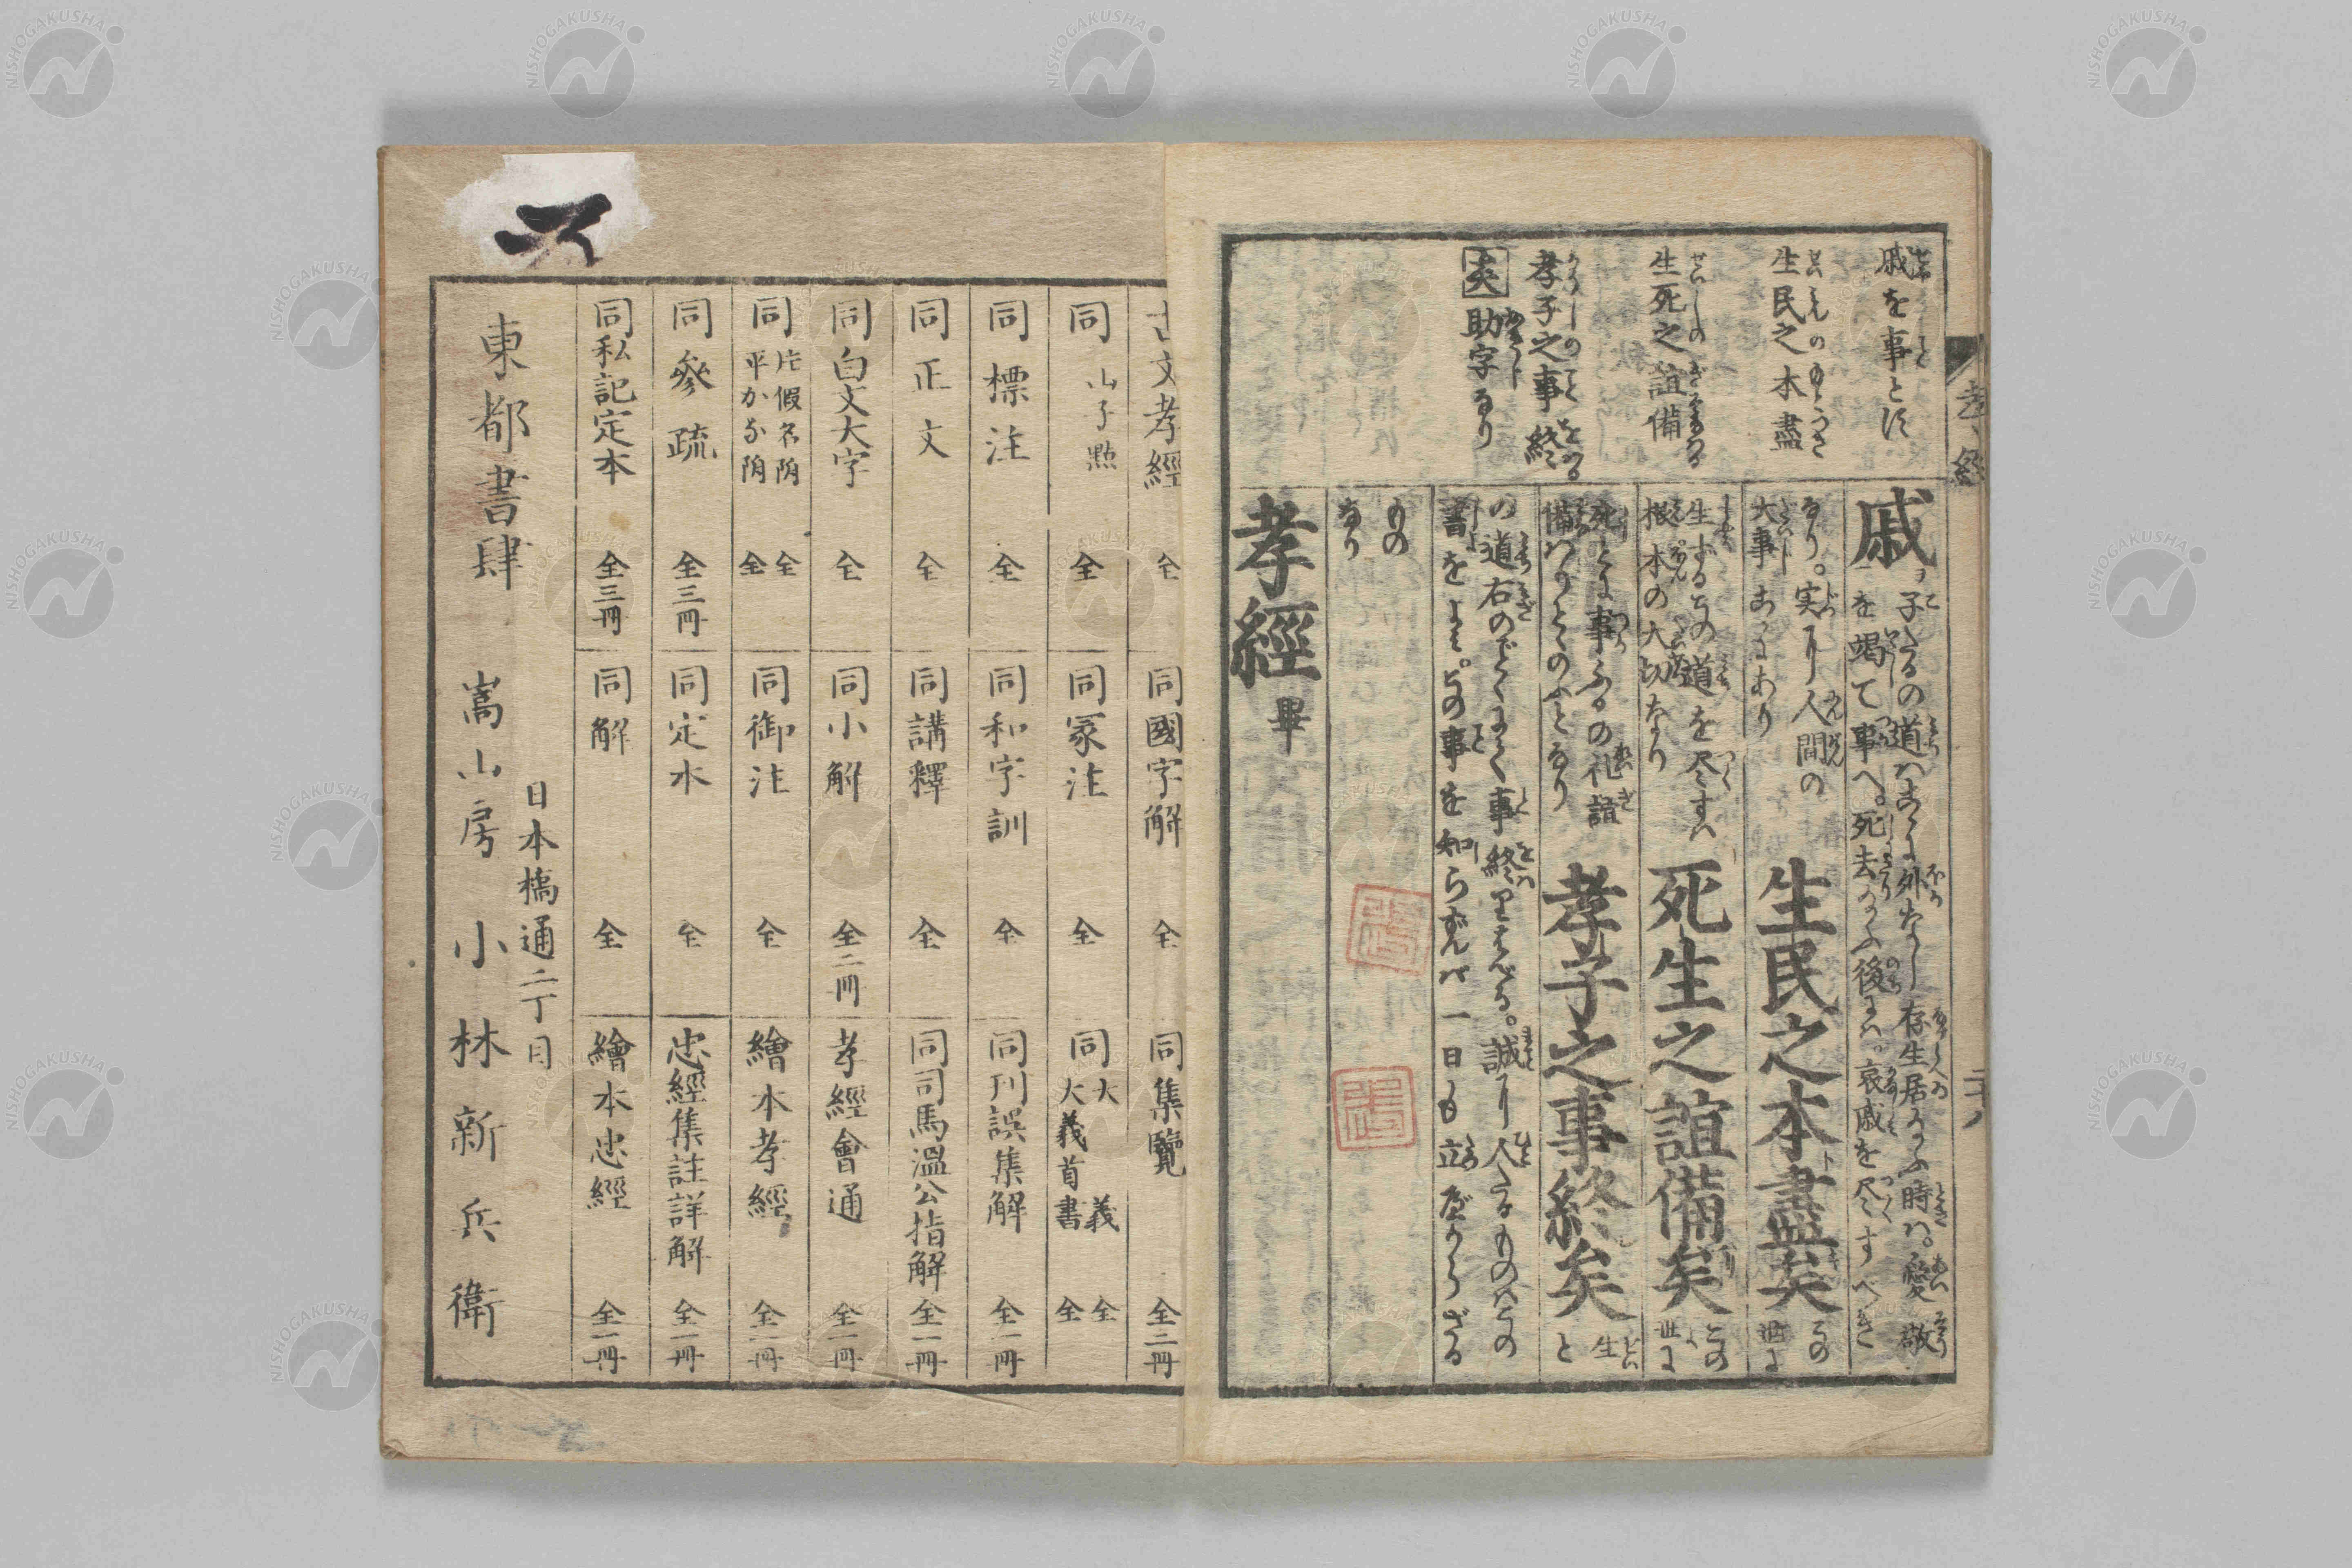 孝經
戚を事とす
生民之本盡
生死之誼備
孝子之事終
矣 助字なり
戚 子たるの道はこゝに外なし存生居給ふ時は。愛敬
を竭て事へ。死去給ふ後には。哀戚を尽すべき
なり。実に人間の
大事こゝにあり
生民之本盡矣
この
世に
生ずるものの道を尽すは
根本の大切なり
死生之誼備矣
この
世に
死とに事ふるの礼誼
備はりとゝのふとなり
孝子之事終矣
生
と
の道右のごとくにて事終るなり。誠に人たるものはこの
書をよみ。その事を知らずんば一日も立べからざる
もの
なり
孝經 畢
古文孝經 全
同國字解 全
同集覽 全二冊
同 山子點 全
同冢注 全
同 大義 全
大義首書 全
同標注 全
同和字訓 全
同刊誤集解 全一冊
同正文 全
同講釋 全
同司馬溫公指解 全一冊
同白文大字 全
同小解 全二冊
孝經會通 全一冊
同 片假名附 全
平かな附 全
同御注 全
繪本孝經 全一冊
同參疏 全三冊
同定本 全
忠經集註詳解 全一冊
同私記定本 全三冊
同解 全
繪本忠經 全一冊
日本橋通二丁目
東都書肆 嵩山房 小林新兵衛